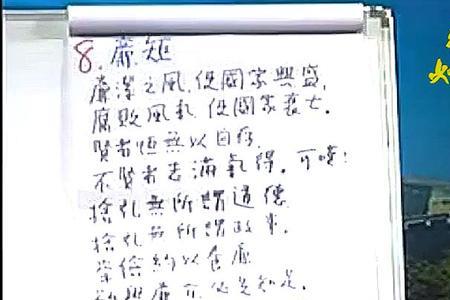 8. 廉矩
廉潔之風,使國家興盛,
腐敗風氣,使國家衰亡.
賢者恆無以自存
不賢者志滿氣得,可嘆!
捨孔無所謂道德
捨孔無所謂政事
崇儉約以養廉
必先知足.